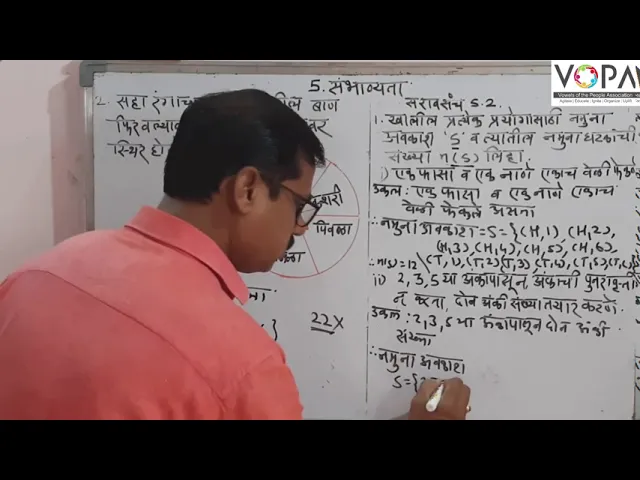 5. संभाव्यता
2. सहा रंगाच
बाण
फिरवल्याव
स्थिर हो
केशरी
पिवळा
22X
सरावसंच 5.2.
1. खालील प्रत्येक प्रयोगासाठी नमुना
अवकाश 'S' व त्यातील नमुना घटकांची
संख्या n(S) लिहा
i) एक फासा व एक नाणे एकाच वेळी फेक
उकल: एक फासा व एक नाणे एकाच
वेळी फेकले असता
∴ नमुना अवकाश = S = {(H,1) (H,2),
(H,3) (H,4), (H,5), (H,6)
∴ n(S) = 12 (T,1), (T,2) (T,3) (T,4), (T,5), (T,6)
ii) 2, 3, 5 या अंकांपासून, अंकांची पुनरावृत्ती
न करता, दोन अंकी संख्या तयार करणे.
उकल: 2, 3, 5 या अंकापासून दोन अंकी
संख्या
∴ नमुना अवकाश
S = {2
VOPA
Vowels of the People Association